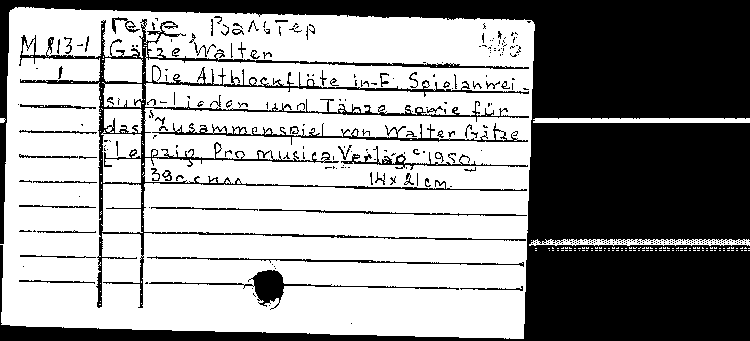 Геце, Вальтер
М 813-1 Götze, Walter
1 Die Altblockflöte in F. Spielanwei-
sung-Lieder und Tänze sowie für
das Zusammenspiel von Walter Götze
[Leipzig, Pro musica Verlag, c 1950]
39 с с илл 14 x 21 cm.